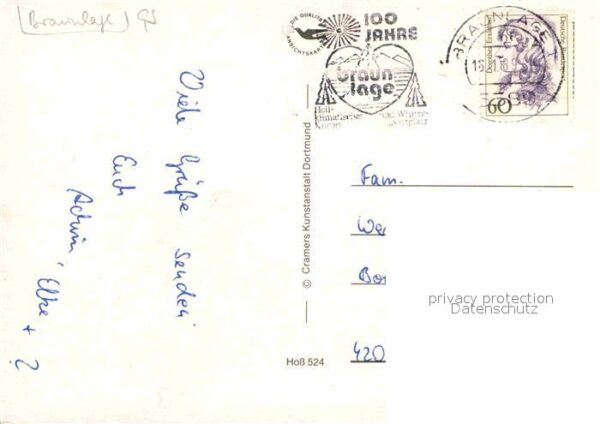 (Braunlage) GS
DIE QUALITÄTS
ANSICHTSKARTE
100
JAHRE
Braun
lage
Heil-
klimatischer
Kurort
und Winter-
sportplatz
BRAUNLAGE 1
Deutsche Bundespost
60
Viele Grüße senden
Euch
Achim, Elke + ?
© Cramers Kunstanstalt Dortmund
Hoß 524
Fam.
We
Bo
420
privacy protection
Datenschutz